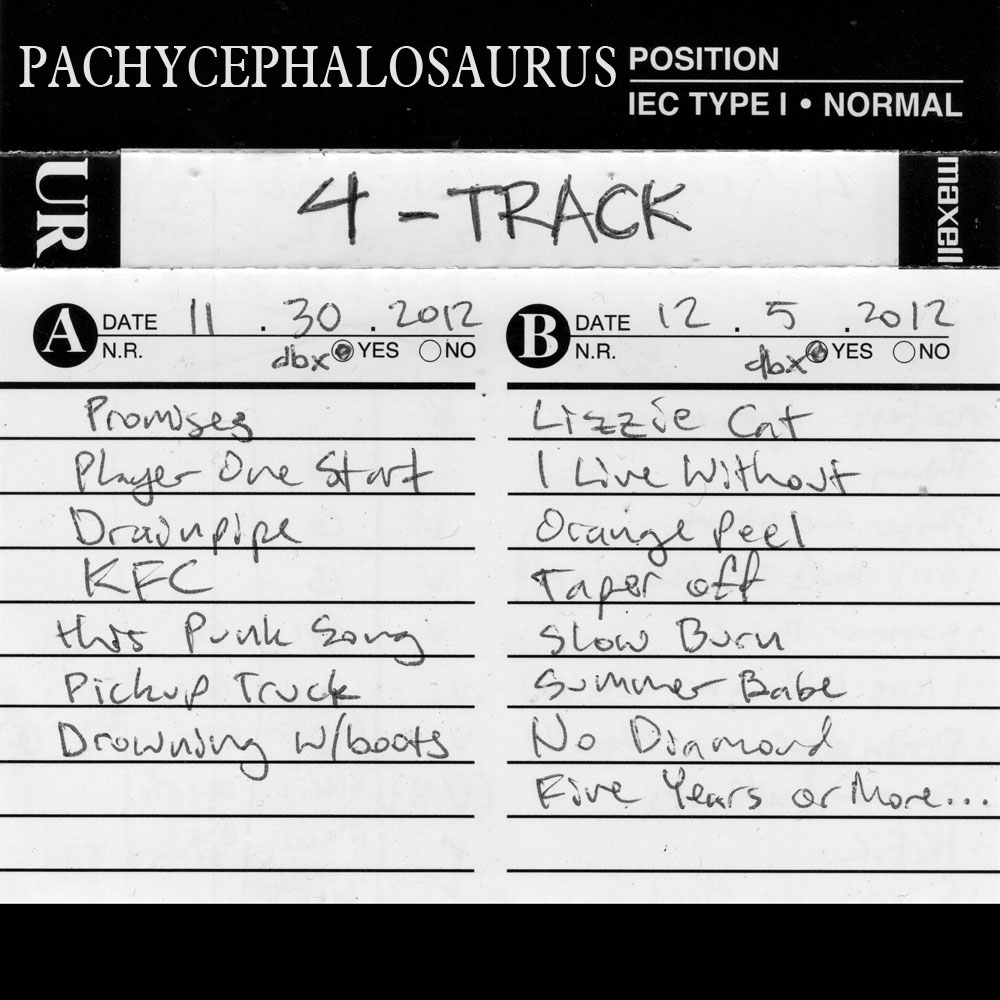 PACHYCEPHALOSAURUS
POSITION
IEC TYPE I • NORMAL
UR
4-TRACK
maxell
A DATE 11 . 30 . 2012
N.R. dbx YES NO
Promises
Player One Start
Drainpipe
KFC
this Punk Song
Pickup Truck
Drowning w/boots
B DATE 12 . 5 . 2012
N.R. dbx YES NO
Lizzie Cat
I Live Without
Orange Peel
Taper off
Slow Burn
Summer Babe
No Diamond
Five Years or More...